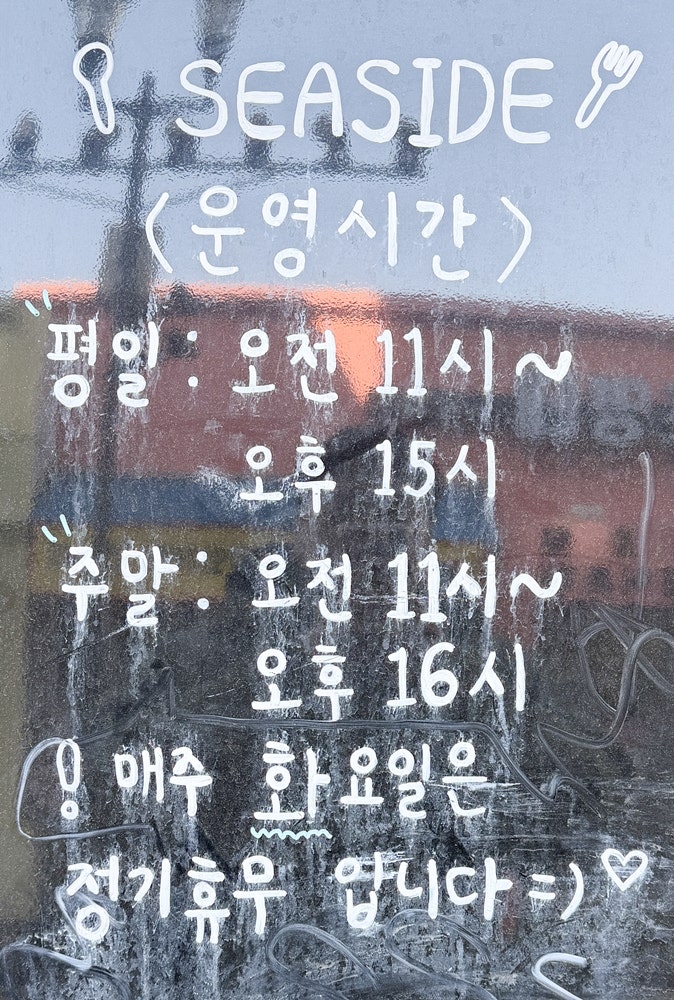 SEASIDE
<운영시간>
평일: 오전 11시~
오후 15시
주말: 오전 11시~
오후 16시
! 매주 화요일은
정기휴무 입니다=)♡